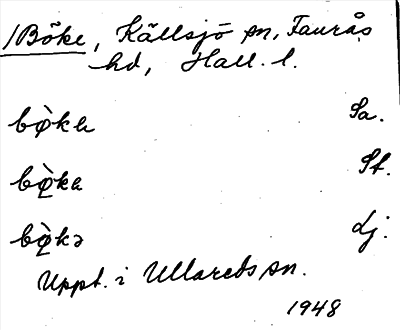 /Böke, Källsjö sn, Faurås
hd, Hall. l.
bø̀kɐ Sa.
bø̀kɐ St.
bø̀kə Lj.
Uppt. i Ullareds sn.
1948